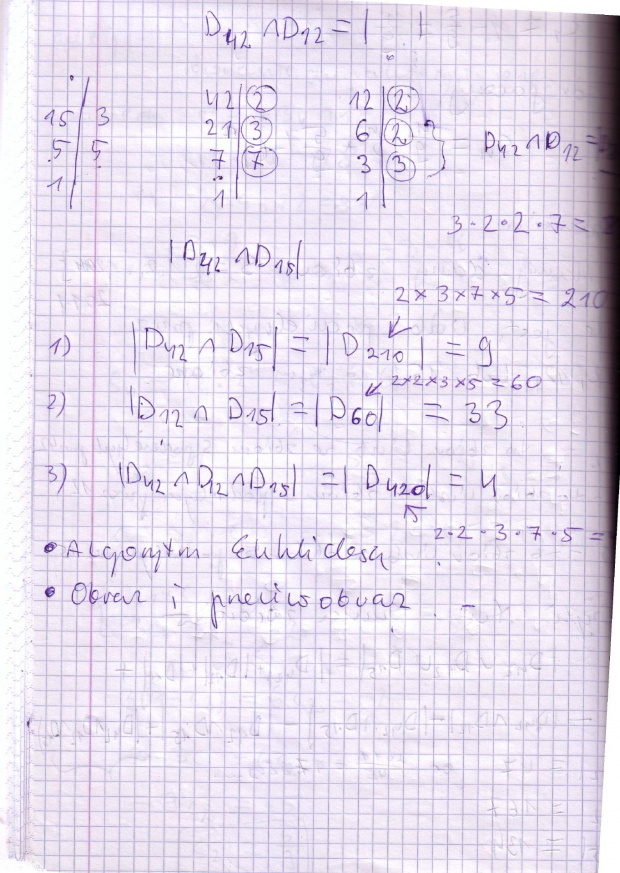 D₄₂ ∩ D₁₂ = |
15 | 3    42 | 2    12 | 2
5 | 5    21 | 3    6 | 2    = D₄₂ ∩ D₁₂ =
1 |    7 | 7    3 | 3
1 |    1 |
3 · 2 · 2 · 7 =
|D₄₂ ∩ D₁₅|
2 × 3 × 7 × 5 = 210
1) |D₄₂ ∩ D₁₅| = |D₂₁₀| = 9
2 × 2 × 3 × 5 = 60
2) |D₁₂ ∩ D₁₅| = |D₆₀| = 33
3) |D₄₂ ∩ D₁₂ ∩ D₁₅| = |D₄₂₀| = 4
2 · 2 · 3 · 7 · 5 =
• Algorytm Euklidesa
• Obraz i przeciwobraz -